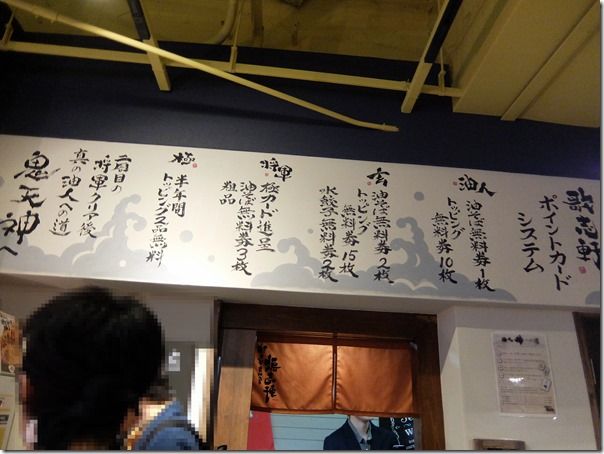 歌志軒
ポイントカード
システム
油人
油そば無料券1枚
トッピング
無料券10枚
玄
油そば無料券2枚
トッピング
無料券15枚
水餃子無料券2枚
将軍
極カード進呈
油そば無料券3枚
粗品
極
半年間
トッピング2品無料
二周目の
将軍クリア後
真の油人への道
鬼天神へ
歌志軒